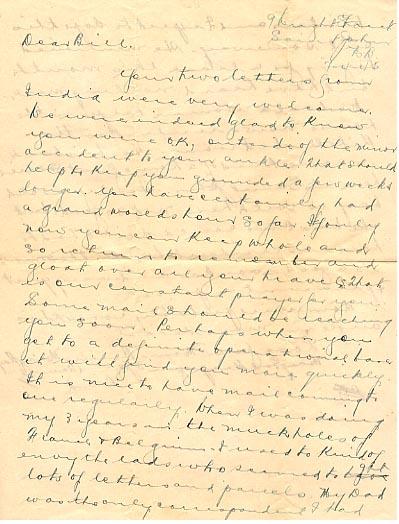 9 Wright Street
East Saint John
N.B.
Dear Bill.
Your two letters from
India were very welcome.
We were indeed glad to know
you were OK, outside of the minor
accident to your ankle. That should
help to keep you grounded a few weeks
longer. You have certainly had
a grand world tour so far. If only
now you can keep whole and
so return to remember and
gloat over all you have & that
is our constant prayer for you.
Some mail should be reaching
you soon. Perhaps when you
get to a definite operational base
it will find you more quickly.
It is nice to have mail coming to
one regularly. When I was doing
my 3 years in the muckholes of
France & Belgium I used to kind of
envy the lads who seemed to get
lots of letters and parcels. My Dad
was the only correspondent I had